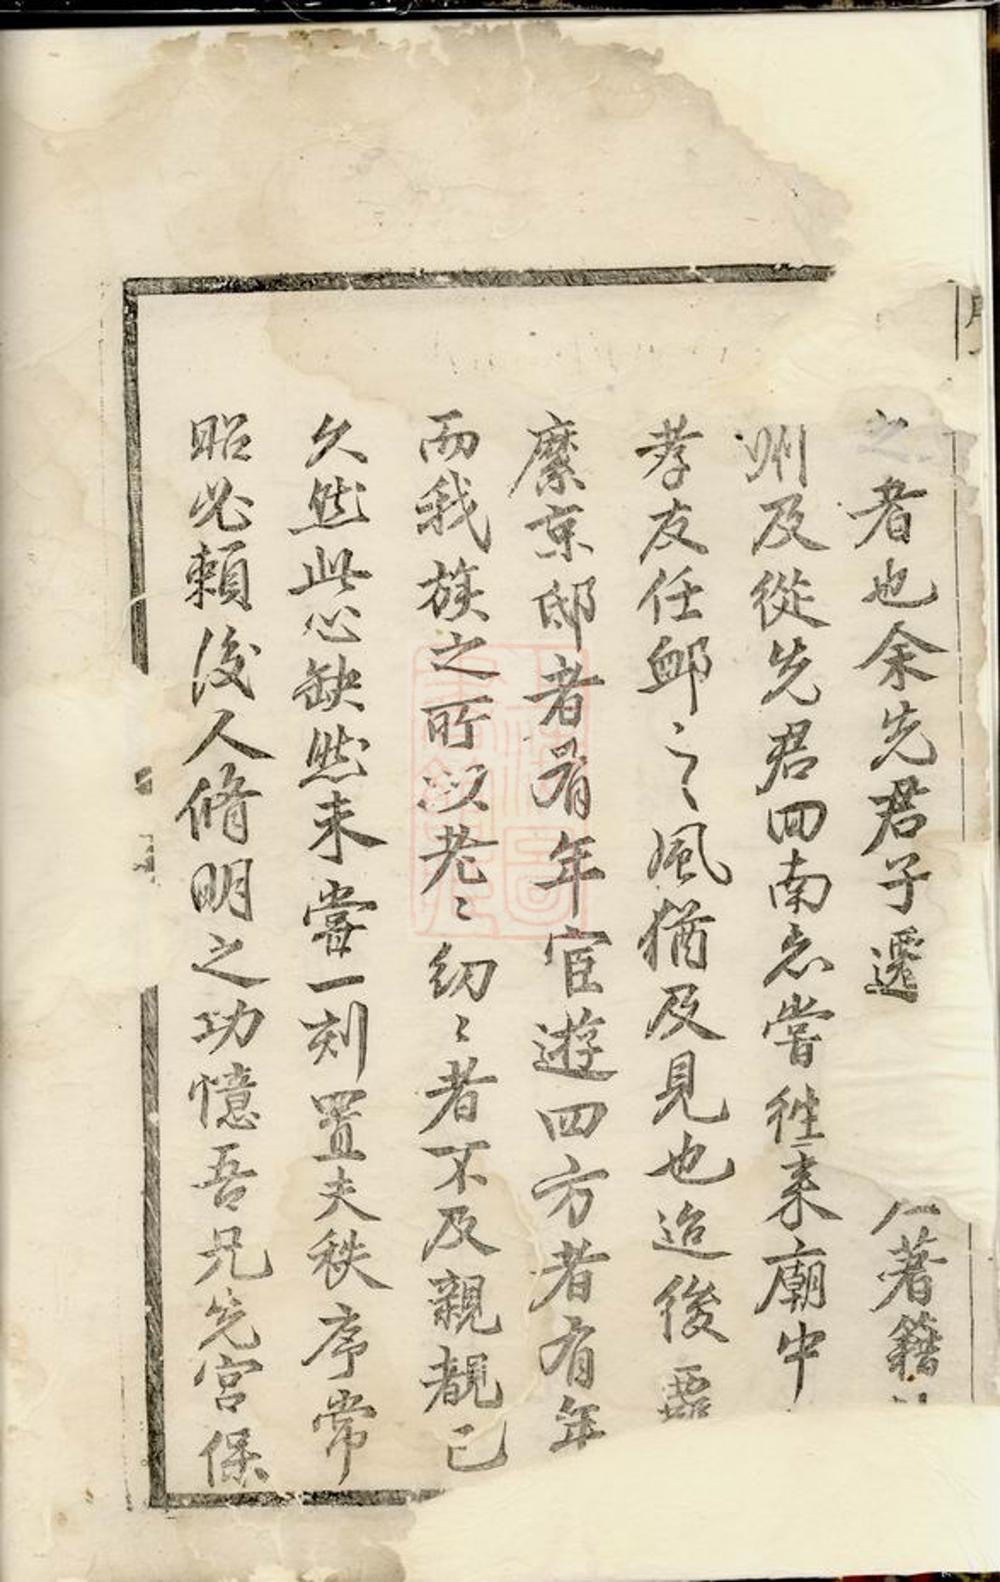 之者也余先君子遷著籍
州及從先君回南忞嘗徃来廟中
孝友任卹之之風猶及見也迨後
縻京邸者有年宦遊四方者有年
而我族之所以老〻幼〻者不及親覩已
久然此心缺然未嘗一刻置夫秩序常
昭必賴後人脩明之功憶吾兄先宮保